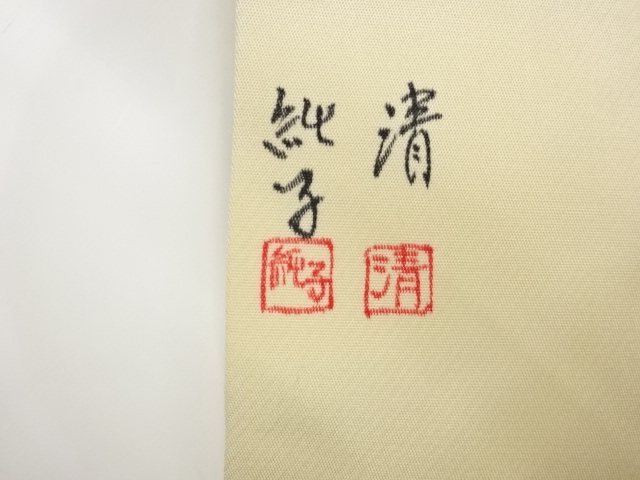 清
清
純子
純子